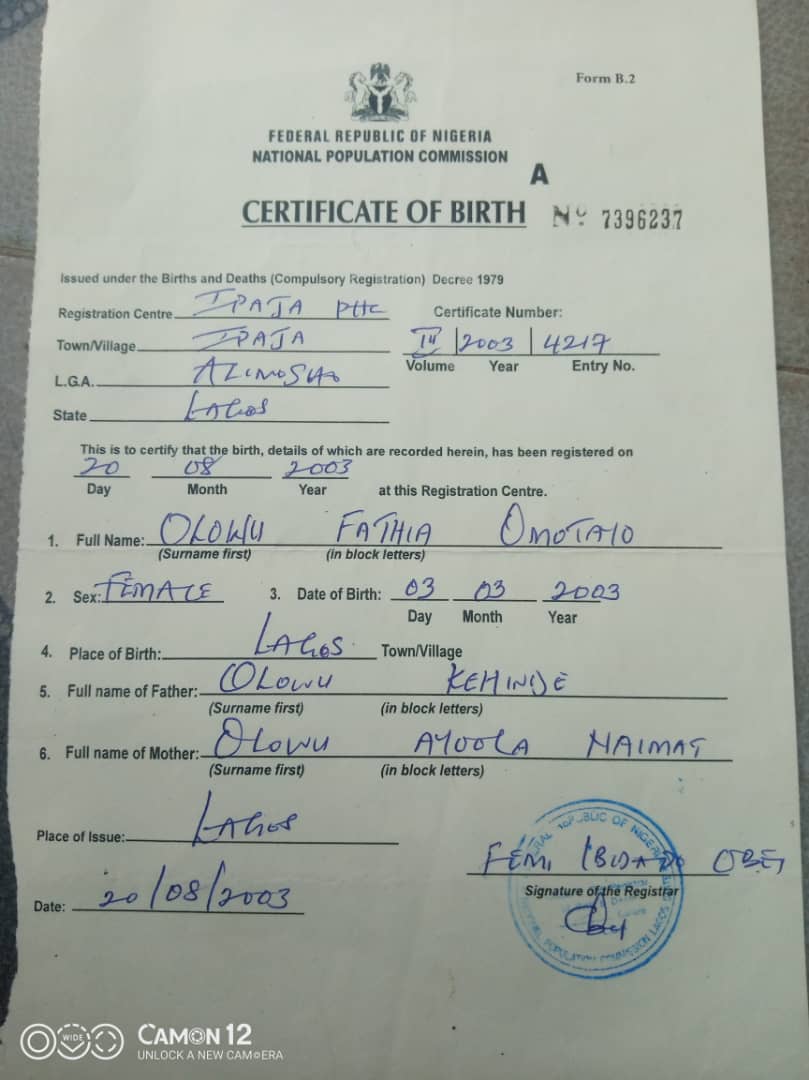 Form B.2
FEDERAL REPUBLIC OF NIGERIA
NATIONAL POPULATION COMMISSION
A
CERTIFICATE OF BIRTH Nº 7396237
Issued under the Births and Deaths (Compulsory Registration) Decree 1979
Registration Centre IPAJA PHC Certificate Number:
Town/Village IPAJA III 2003 4217
Volume Year Entry No.
L.G.A. ALIMOSHO
State LAGOS
This is to certify that the birth, details of which are recorded herein, has been registered on
20 08 2003
Day Month Year at this Registration Centre.
1. Full Name: OLOWU FATHIA OMOTAYO
(Surname first) (in block letters)
2. Sex: FEMALE 3. Date of Birth: 03 03 2003
Day Month Year
4. Place of Birth: LAGOS Town/Village
5. Full name of Father: OLOWU KEHINDE
(Surname first) (in block letters)
6. Full name of Mother: OLOWU AYOOLA NAIMAT
(Surname first) (in block letters)
Place of Issue: LAGOS
FEMI
Signature of the Registrar
Date: 20/08/2003
REPUBLIC OF NIGERIA
POPULATION COMMISSION LAGOS
WIDE
CAMON 12
UNLOCK A NEW CAMERA